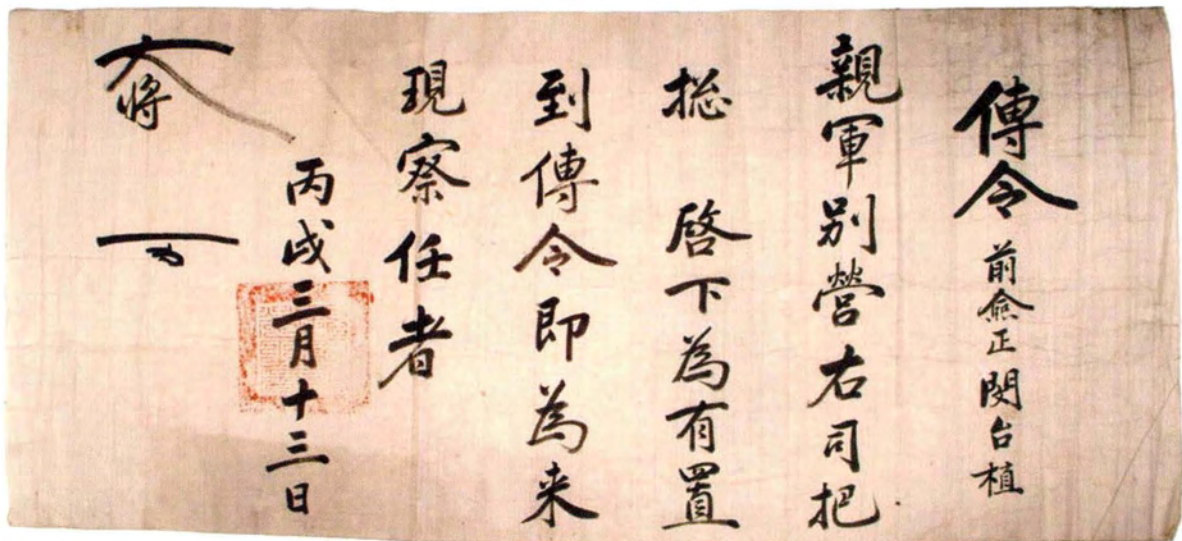 傳令 前僉正閔台植
親軍別營右司把
摠 啓下為有置
到傳令即為来
現察任者
丙戌三月十三日
大將